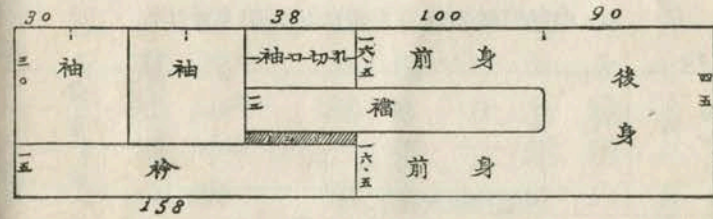 30 38 100 90
三〇
袖
袖
袖口切れ
一六・五
前身
後身
四五
一五
襠
一五
衿
一六・五
前身
158